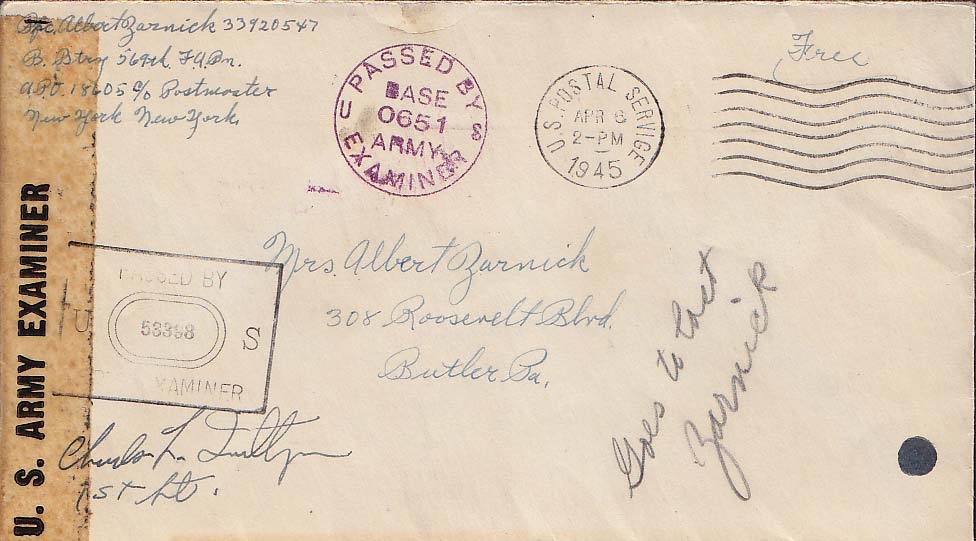 Pfc. Albert Zarnick 33920547
B. Btry 569th F.A. Bn.
A.P.O. 18605 c/o Postmaster
New York New York
PASSED BY
BASE
0651
ARMY
EXAMINER
U S
U.S. POSTAL SERVICE
APR 6
2-PM
1945
Free
U. S. ARMY EXAMINER
PASSED BY
U 53398 S
EXAMINER
Mrs. Albert Zarnick
308 Roosevelt Blvd.
Butler Pa.
Goes to
Zarnick
Charles L.
1st Lt.